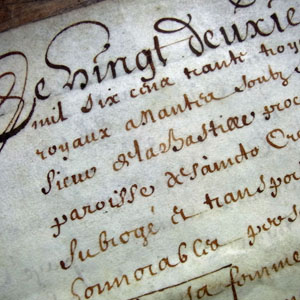 Le Vingt deuxie
mil six cens trante troy
royaux a Mantes soubz
sieur de la bastide pro
paroisse de saincto
subrogé et transpor
honnorables per
sa femme